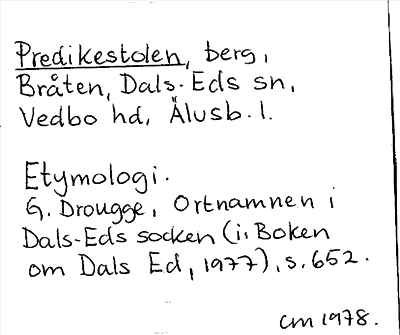 Predikestolen, berg,
Bråten, Dals-Eds sn,
Vedbo hd, Älvsb. l.
Etymologi.
G. Drougge, Ortnamnen i
Dals-Eds socken (i: Boken
om Dals Ed, 1977), s. 652.
CM 1978.